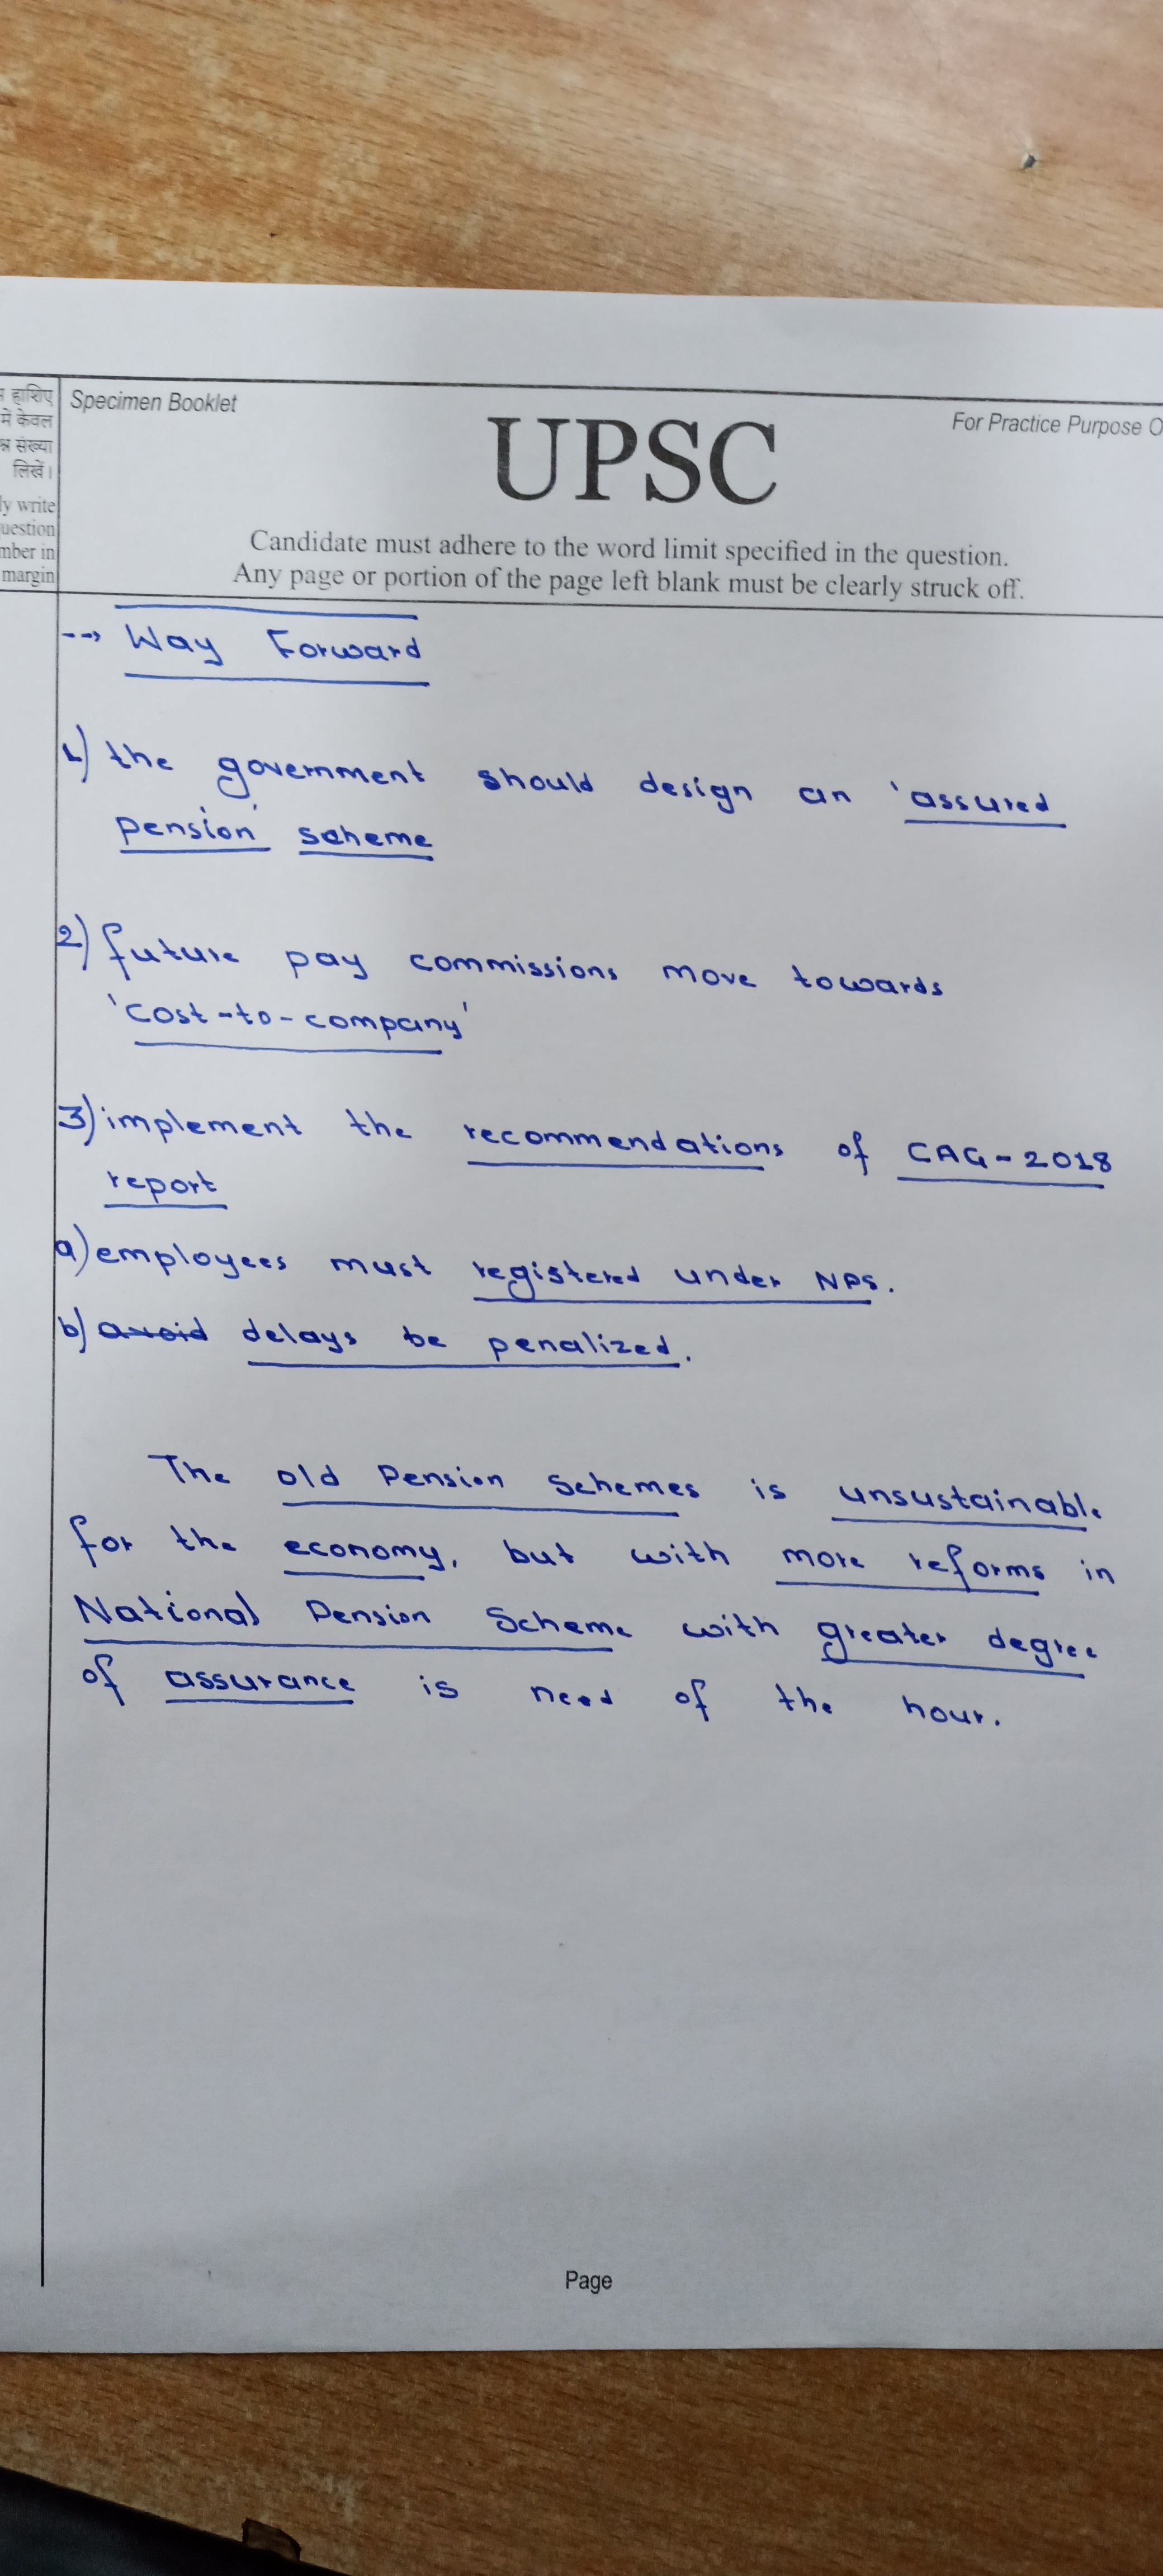 हाशिए
में केवल
संख्या
लिखें।
write
mber in
margin
Specimen Booklet
UPSC
For Practice Purpose
Candidate must adhere to the word limit specified in the question.
Any page or portion of the page left blank must be clearly struck off.
--> Way Forward
1) the government should design an 'assured
pension' scheme
2) future pay commissions move towards
'cost-to-company'
3) implement the recommendations of CAG-2018
report
a) employees must registered under NPS.
b) avoid delays be penalized.
The old Pension Schemes is unsustainable
for the economy, but with more reforms in
National Pension Scheme with greater degree
of assurance is need of the hour.
Page